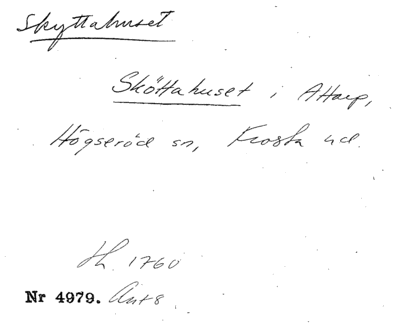 Skyttahuset
Sköttahuset i Attarp,
Högseröd sn, Frosta hd.
Hh. 1760
Nr 4979. Ant 8